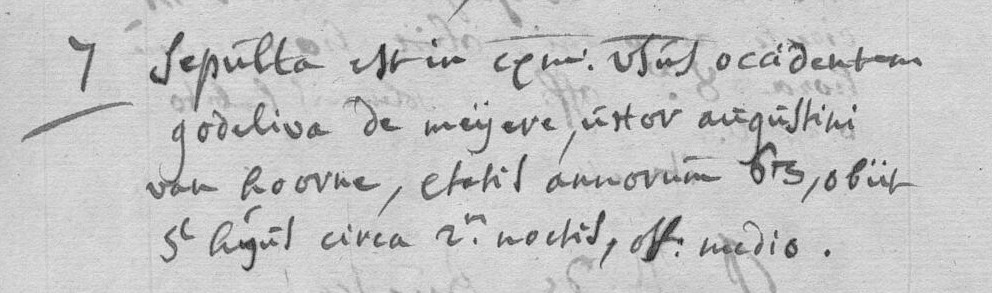 7 Sepulta est in cem. vsus occidentem
godeliva de meijere, uxor augustini
van hoorne, etatis annorum 63, obiit
5t hujus circa 2m. noctis, off: medio.